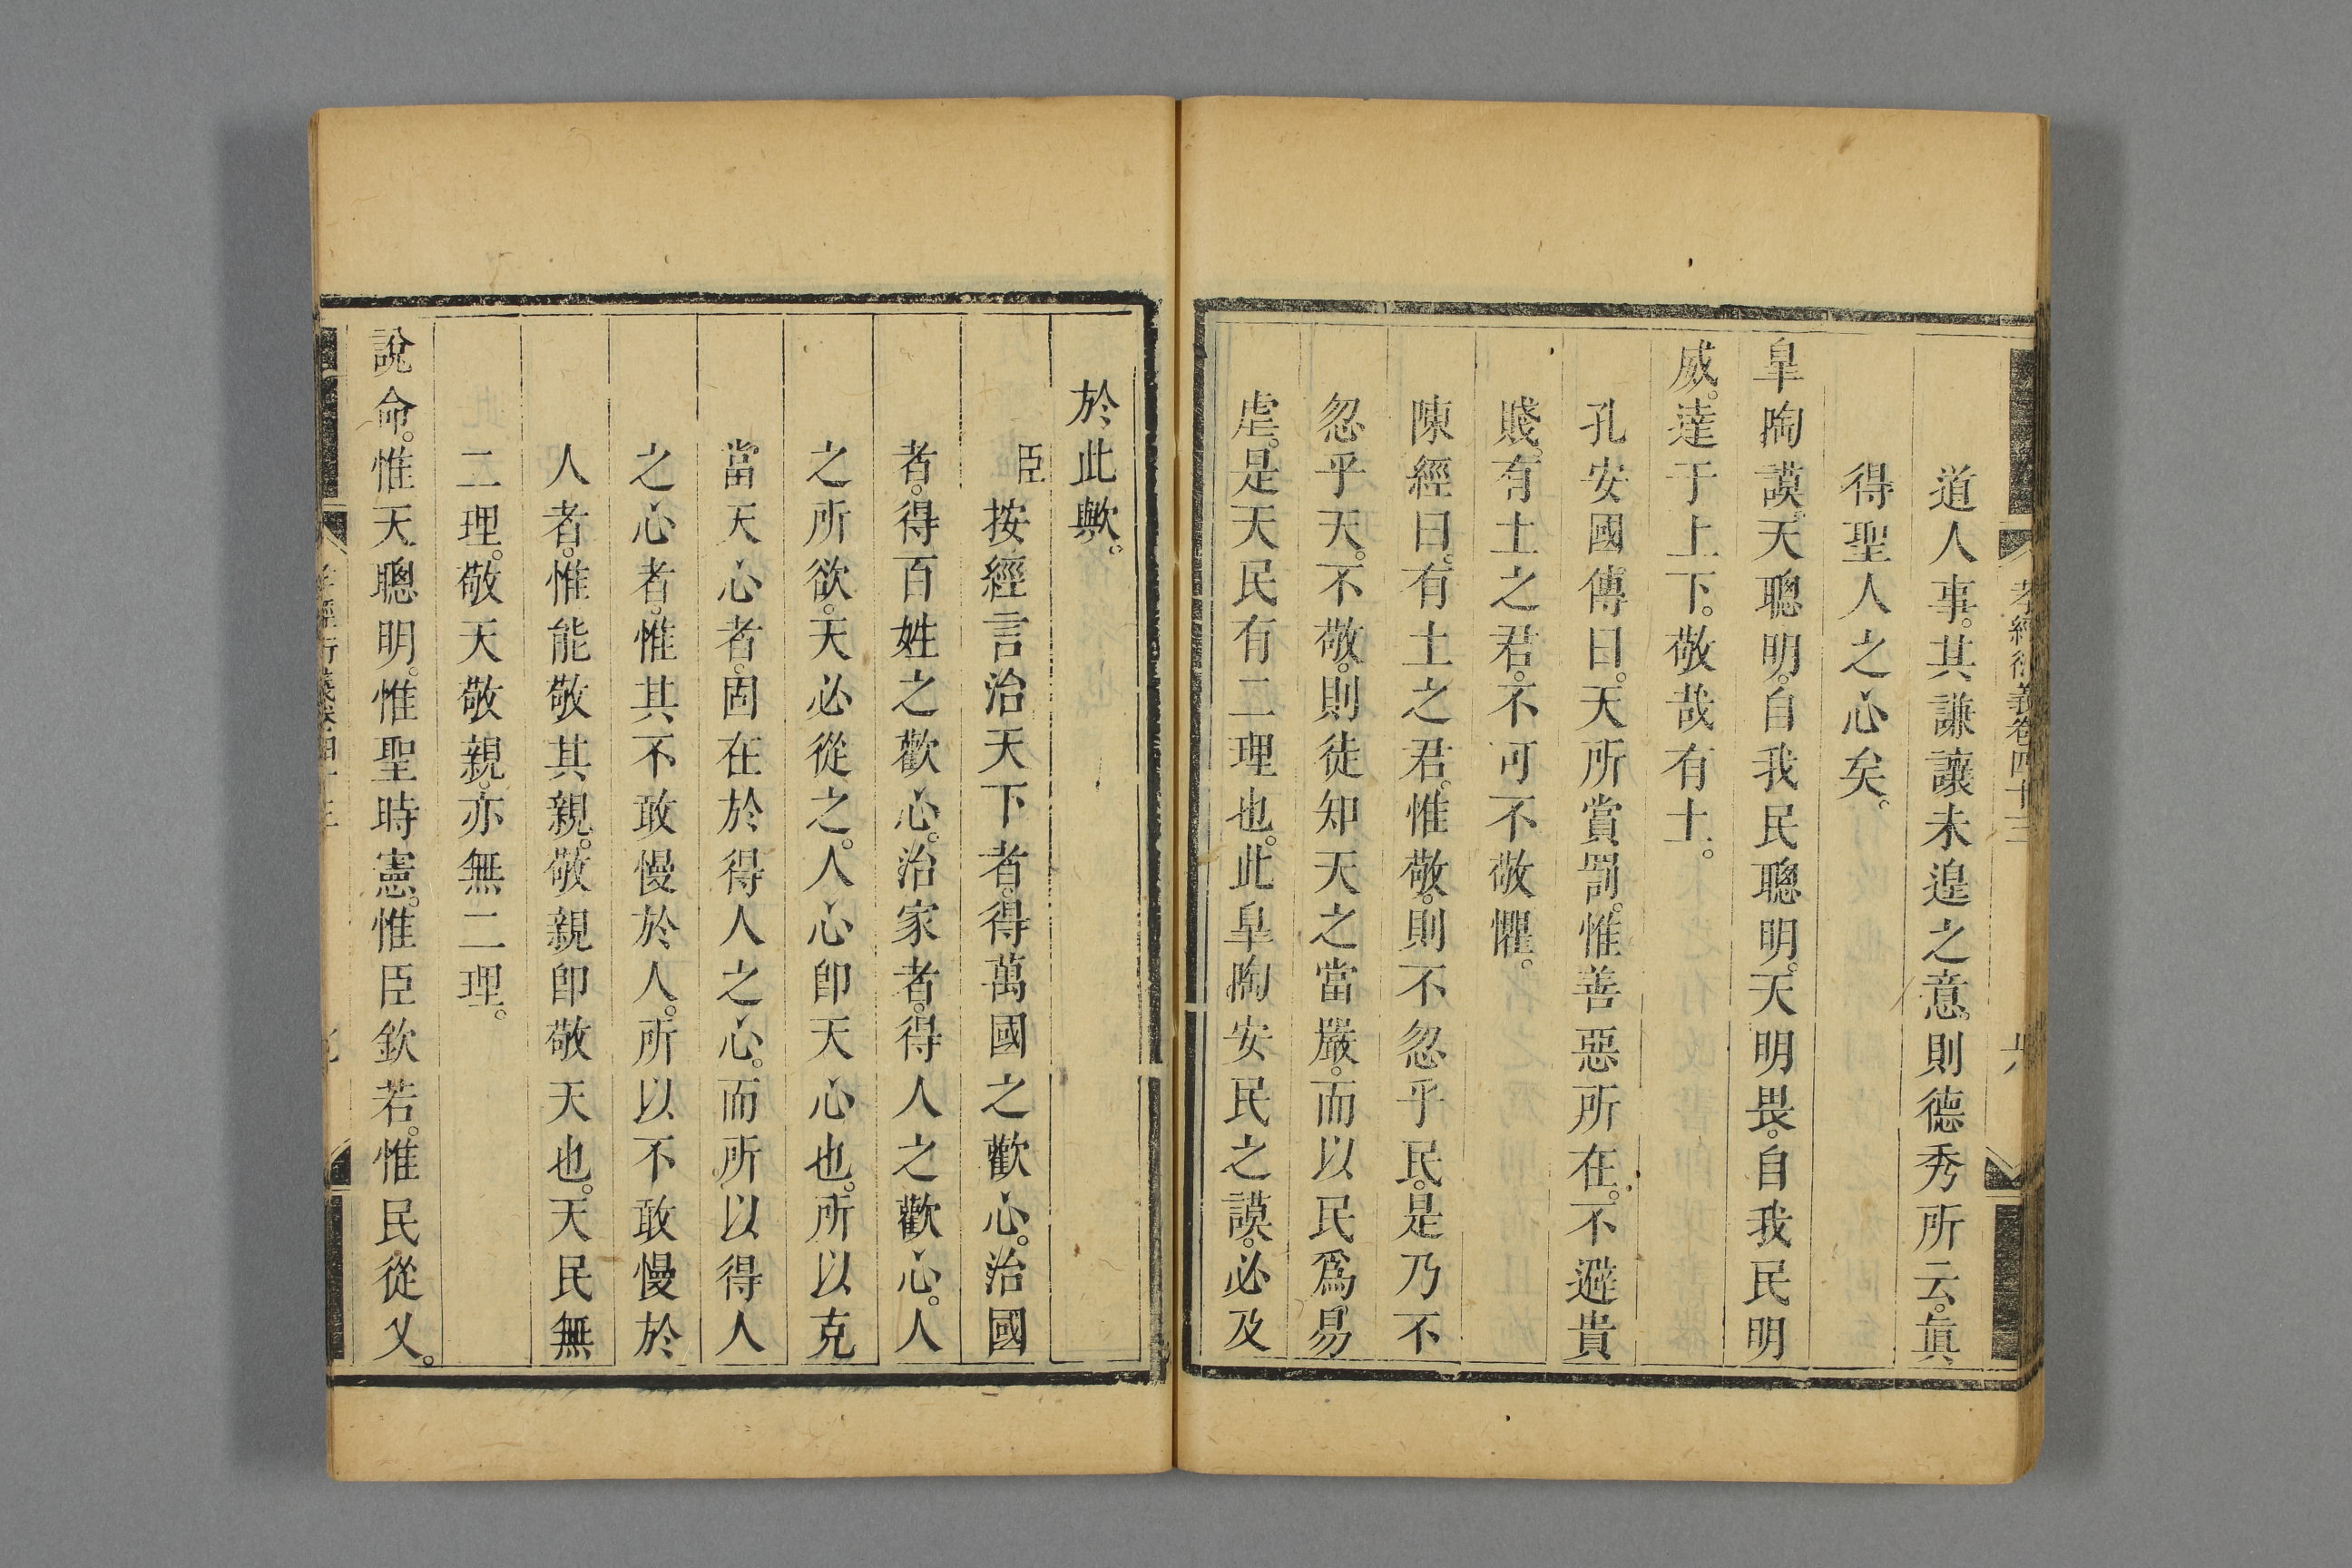 孝經衍義卷四十三
道人事。其謙讓未遑之意。則德秀所云。眞
得聖人之心矣。
皐陶謨。天聰明。自我民聰明。天明畏。自我民明
威。達于上下。敬哉有土。
孔安國傳曰。天所賞罰。惟善惡所在。不避貴
賤。有土之君。不可不敬懼。
陳經曰。有土之君。惟敬。則不忽乎民。是乃不
忽乎天。不敬。則徒知天之當嚴。而以民爲易
虐。是天民有二理也。此皐陶安民之謨。必及
於此歟。
臣按經言治天下者。得萬國之歡心。治國
者。得百姓之歡心。治家者。得人之歡心。人
之所欲。天必從之。人心卽天心也。所以克
當天心者。固在於得人之心。而所以得人
之心者。惟其不敢慢於人。所以不敢慢於
人者。惟能敬其親。敬親卽敬天也。天民無
二理。敬天敬親。亦無二理。
說命。惟天聰明。惟聖時憲。惟臣欽若。惟民從乂。